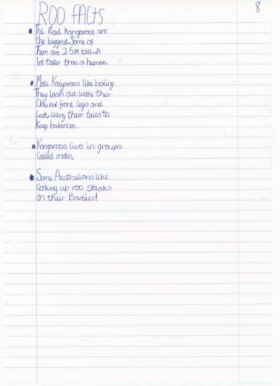 8
ROO FACTS
The Red Kangaroos are
the biggest. Some of
Them are 2.5M tall. A
lot taller than a human.
Male Kangaroos like boxing
They lash out with their
and front legs and
feet using their tails to
keep balance.
Kangaroos live in groups
Called mobs.
Some Australians like
Cooking up roo steaks
on their Barbies!